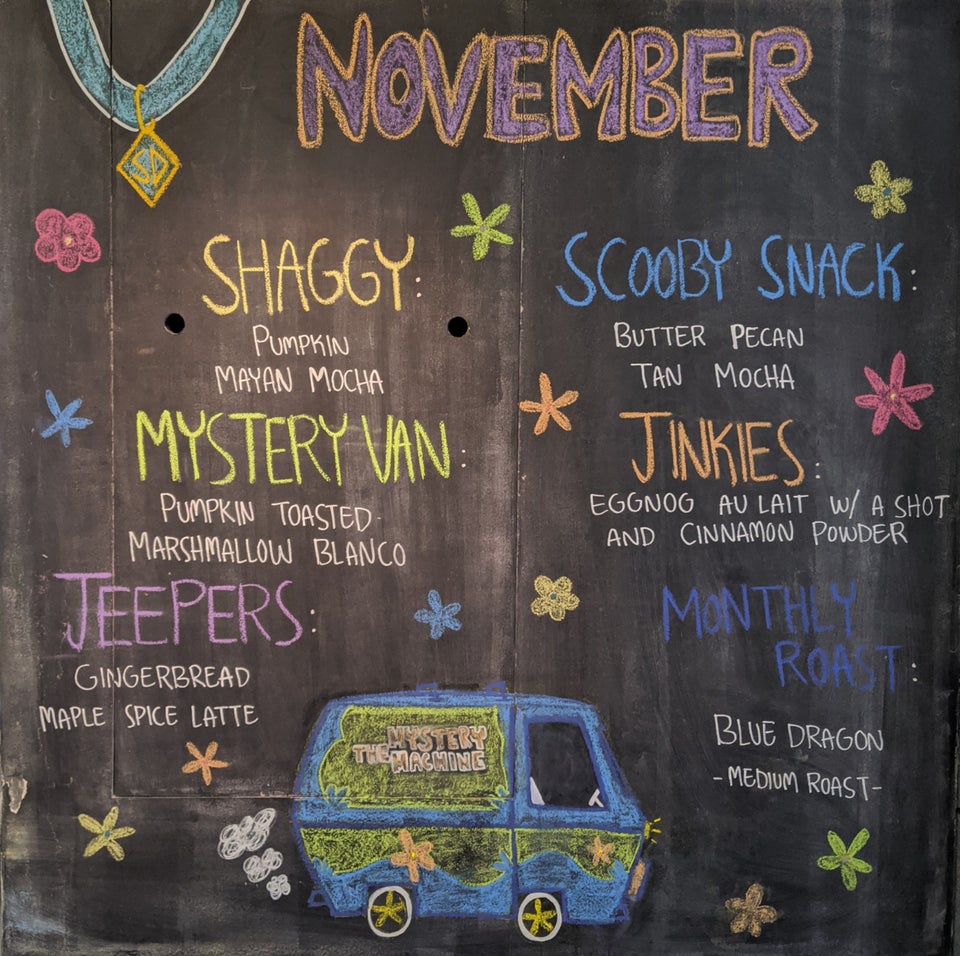 NOVEMBER
SD
SHAGGY:
PUMPKIN
MAYAN MOCHA
SCOOBY SNACK:
BUTTER PECAN
TAN MOCHA
MYSTERY VAN:
PUMPKIN TOASTED
MARSHMALLOW BLANCO
JINKIES:
EGGNOG AU LAIT W/ A SHOT
AND CINNAMON POWDER
JEEPERS:
GINGERBREAD
MAPLE SPICE LATTE
MONTHLY
ROAST:
BLUE DRAGON
-MEDIUM ROAST-
THE MYSTERY
MACHINE